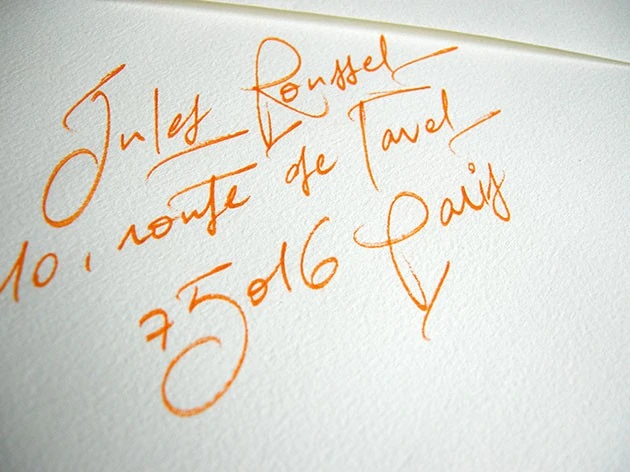 Jules Roussel
10, route de Tavel
75016 Paris